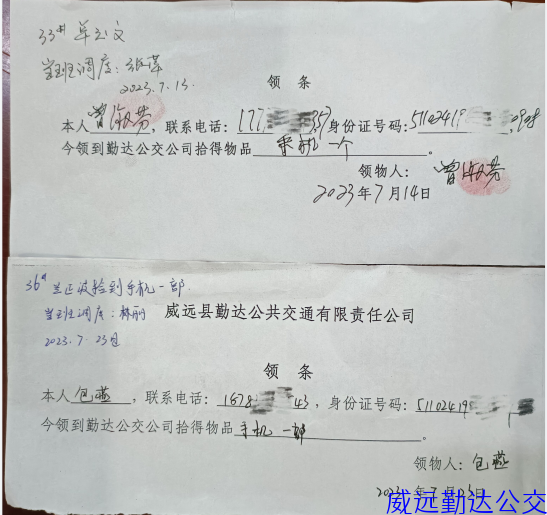 33# 单玉文
当班调度：张萍
2023.7.13
领 条
本人曾淑芳，联系电话：177 357，身份证号码：51102419 0908
今领到勤达公交公司拾得物品 手机一个 。
领物人：曾淑芳
2023年7月14日
36# 兰正波捡到手机一部
当班调度：林丽
2023.7.23日
威远县勤达公共交通有限责任公司
领 条
本人包燕，联系电话：1878 43，身份证号码：51102419
今领到勤达公交公司拾得物品手机一部 。
领物人：包燕
2023年7月 日
威远勤达公交